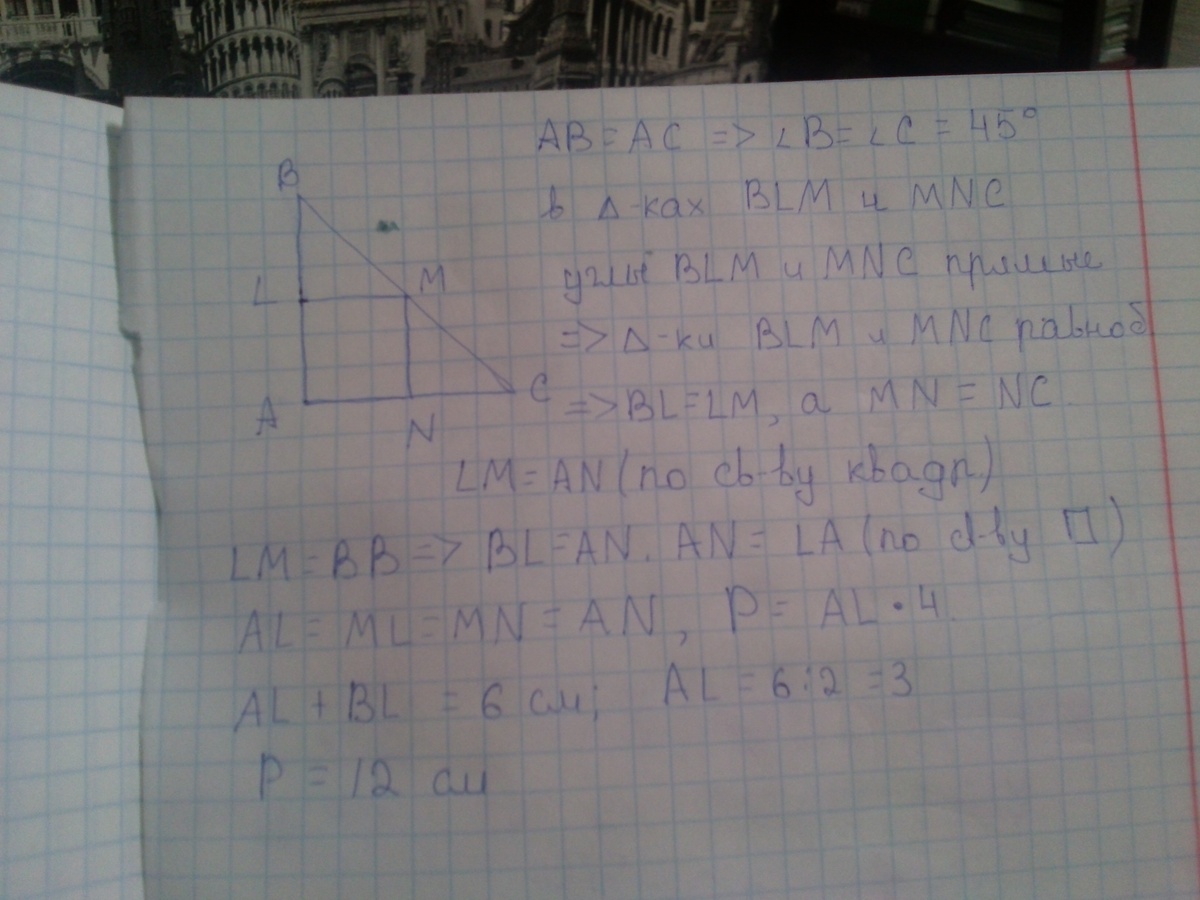 AB = AC => ∠B = ∠C = 45°
B
в Δ-ках BLM и MNC
L
M
углы BLM и MNC прямые
=> Δ-ки BLM и MNC равноб
A
N
C
=> BL = LM, а MN = NC.
LM = AN (по св-ву квадр.)
LM = BB => BL = AN. AN = LA (по св-ву □)
AL = ML = MN = AN, P = AL · 4.
AL + BL = 6 см; AL = 6 : 2 = 3
P = 12 см